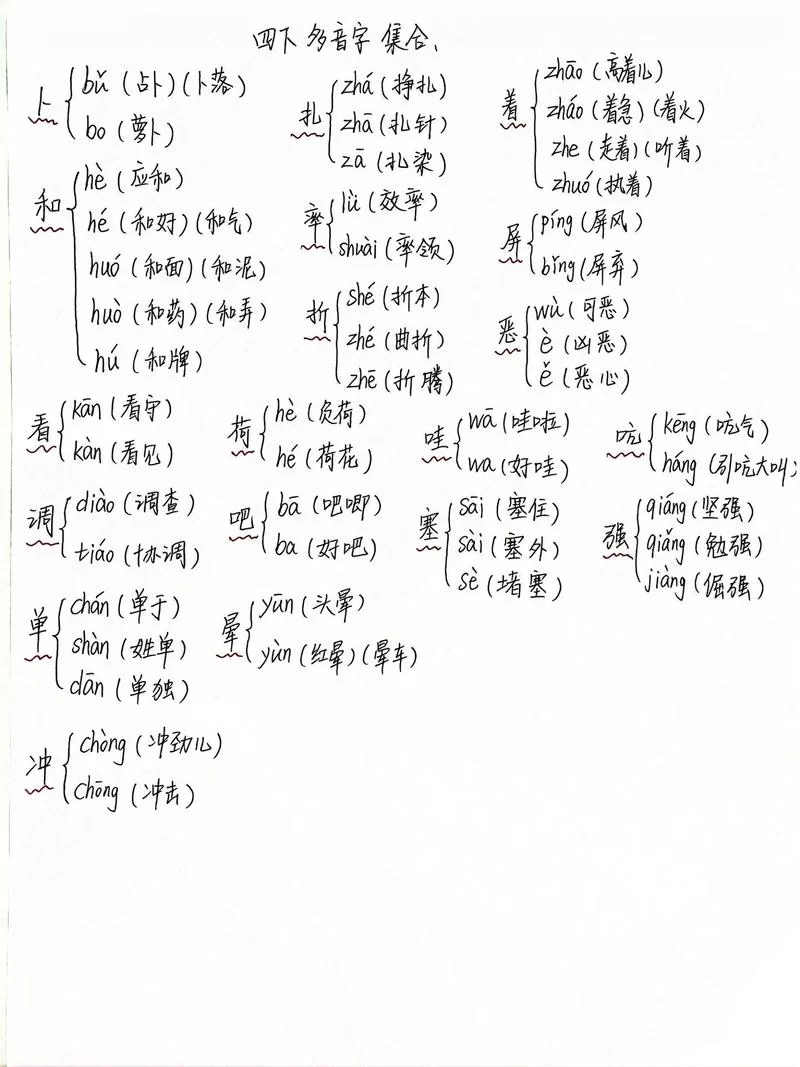 四下多音字集合、
卜
bǔ(占卜)(卜落)
bo(萝卜)
扎
zhá(挣扎)
zhā(扎针)
zā(扎染)
着
zhāo(高着儿)
zháo(着急)(着火)
zhe(走着)(听着)
zhuó(执着)
和
hè(应和)
hé(和好)(和气)
huó(和面)(和泥)
huò(和药)(和弄)
hú(和牌)
率
lǜ(效率)
shuài(率领)
屏
píng(屏风)
bǐng(屏弃)
折
shé(折本)
zhé(曲折)
zhē(折腾)
恶
wù(可恶)
è(凶恶)
ě(恶心)
看
kān(看守)
kàn(看见)
荷
hè(负荷)
hé(荷花)
哇
wā(哇啦)
wa(好哇)
吭
kēng(吭气)
háng(引吭大叫)
调
diào(调查)
tiáo(协调)
吧
bā(吧唧)
ba(好吧)
塞
sāi(塞住)
sài(塞外)
sè(堵塞)
强
qiáng(坚强)
qiǎng(勉强)
jiàng(倔强)
单
chán(单于)
shàn(姓单)
dān(单独)
晕
yūn(头晕)
yùn(红晕)(晕车)
冲
chòng(冲劲儿)
chōng(冲击)